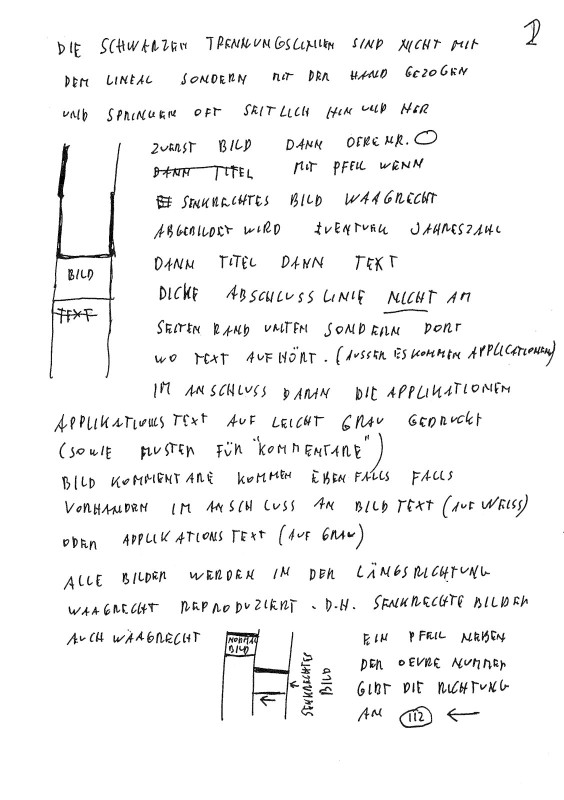 1
DIE SCHWARZEN TRENNUNGSLINIEN SIND NICHT MIT
DEM LINEAL SONDERN MIT DER HAND GEZOGEN
UND SPRINGEN OFT SEITLICH HIN UND HER
ZUERST BILD DANN OEVRE NR.
DANN TITEL MIT PFEIL WENN
SENKRECHTES BILD WAAGRECHT
ABGEBILDET WIRD EVENTUELL JAHRESZAHL
DANN TITEL DANN TEXT
BILD
TEXT
DICKE ABSCHLUSS LINIE NICHT AM
SEITEN RAND UNTEN SONDERN DORT
WO TEXT AUFHÖRT. (AUSSER ES KOMMEN APPLICATIONEN)
IM ANSCHLUSS DARAN DIE APPLIKATIONEN
APPLIKATIONS TEXT AUF LEICHT GRAU GEDRUCKT
(SOWIE MUSTER FÜR "KOMMENTARE")
BILD KOMMENTARE KOMMEN EBENFALLS FALLS
VORHANDEN IM ANSCHLUSS AN BILD TEXT (AUF WEISS)
ODER APPLIKATIONS TEXT (AUF GRAU)
ALLE BILDER WERDEN IN DER LÄNGSRICHTUNG
WAAGRECHT REPRODUZIERT . D.H. SENKRECHTE BILDER
AUCH WAAGRECHT
NORMAL
BILD
SENKRECHTES
BILD
EIN PFEIL NEBEN
DER OEVRE NUMMER
GIBT DIE RICHTUNG
AN 112 ←